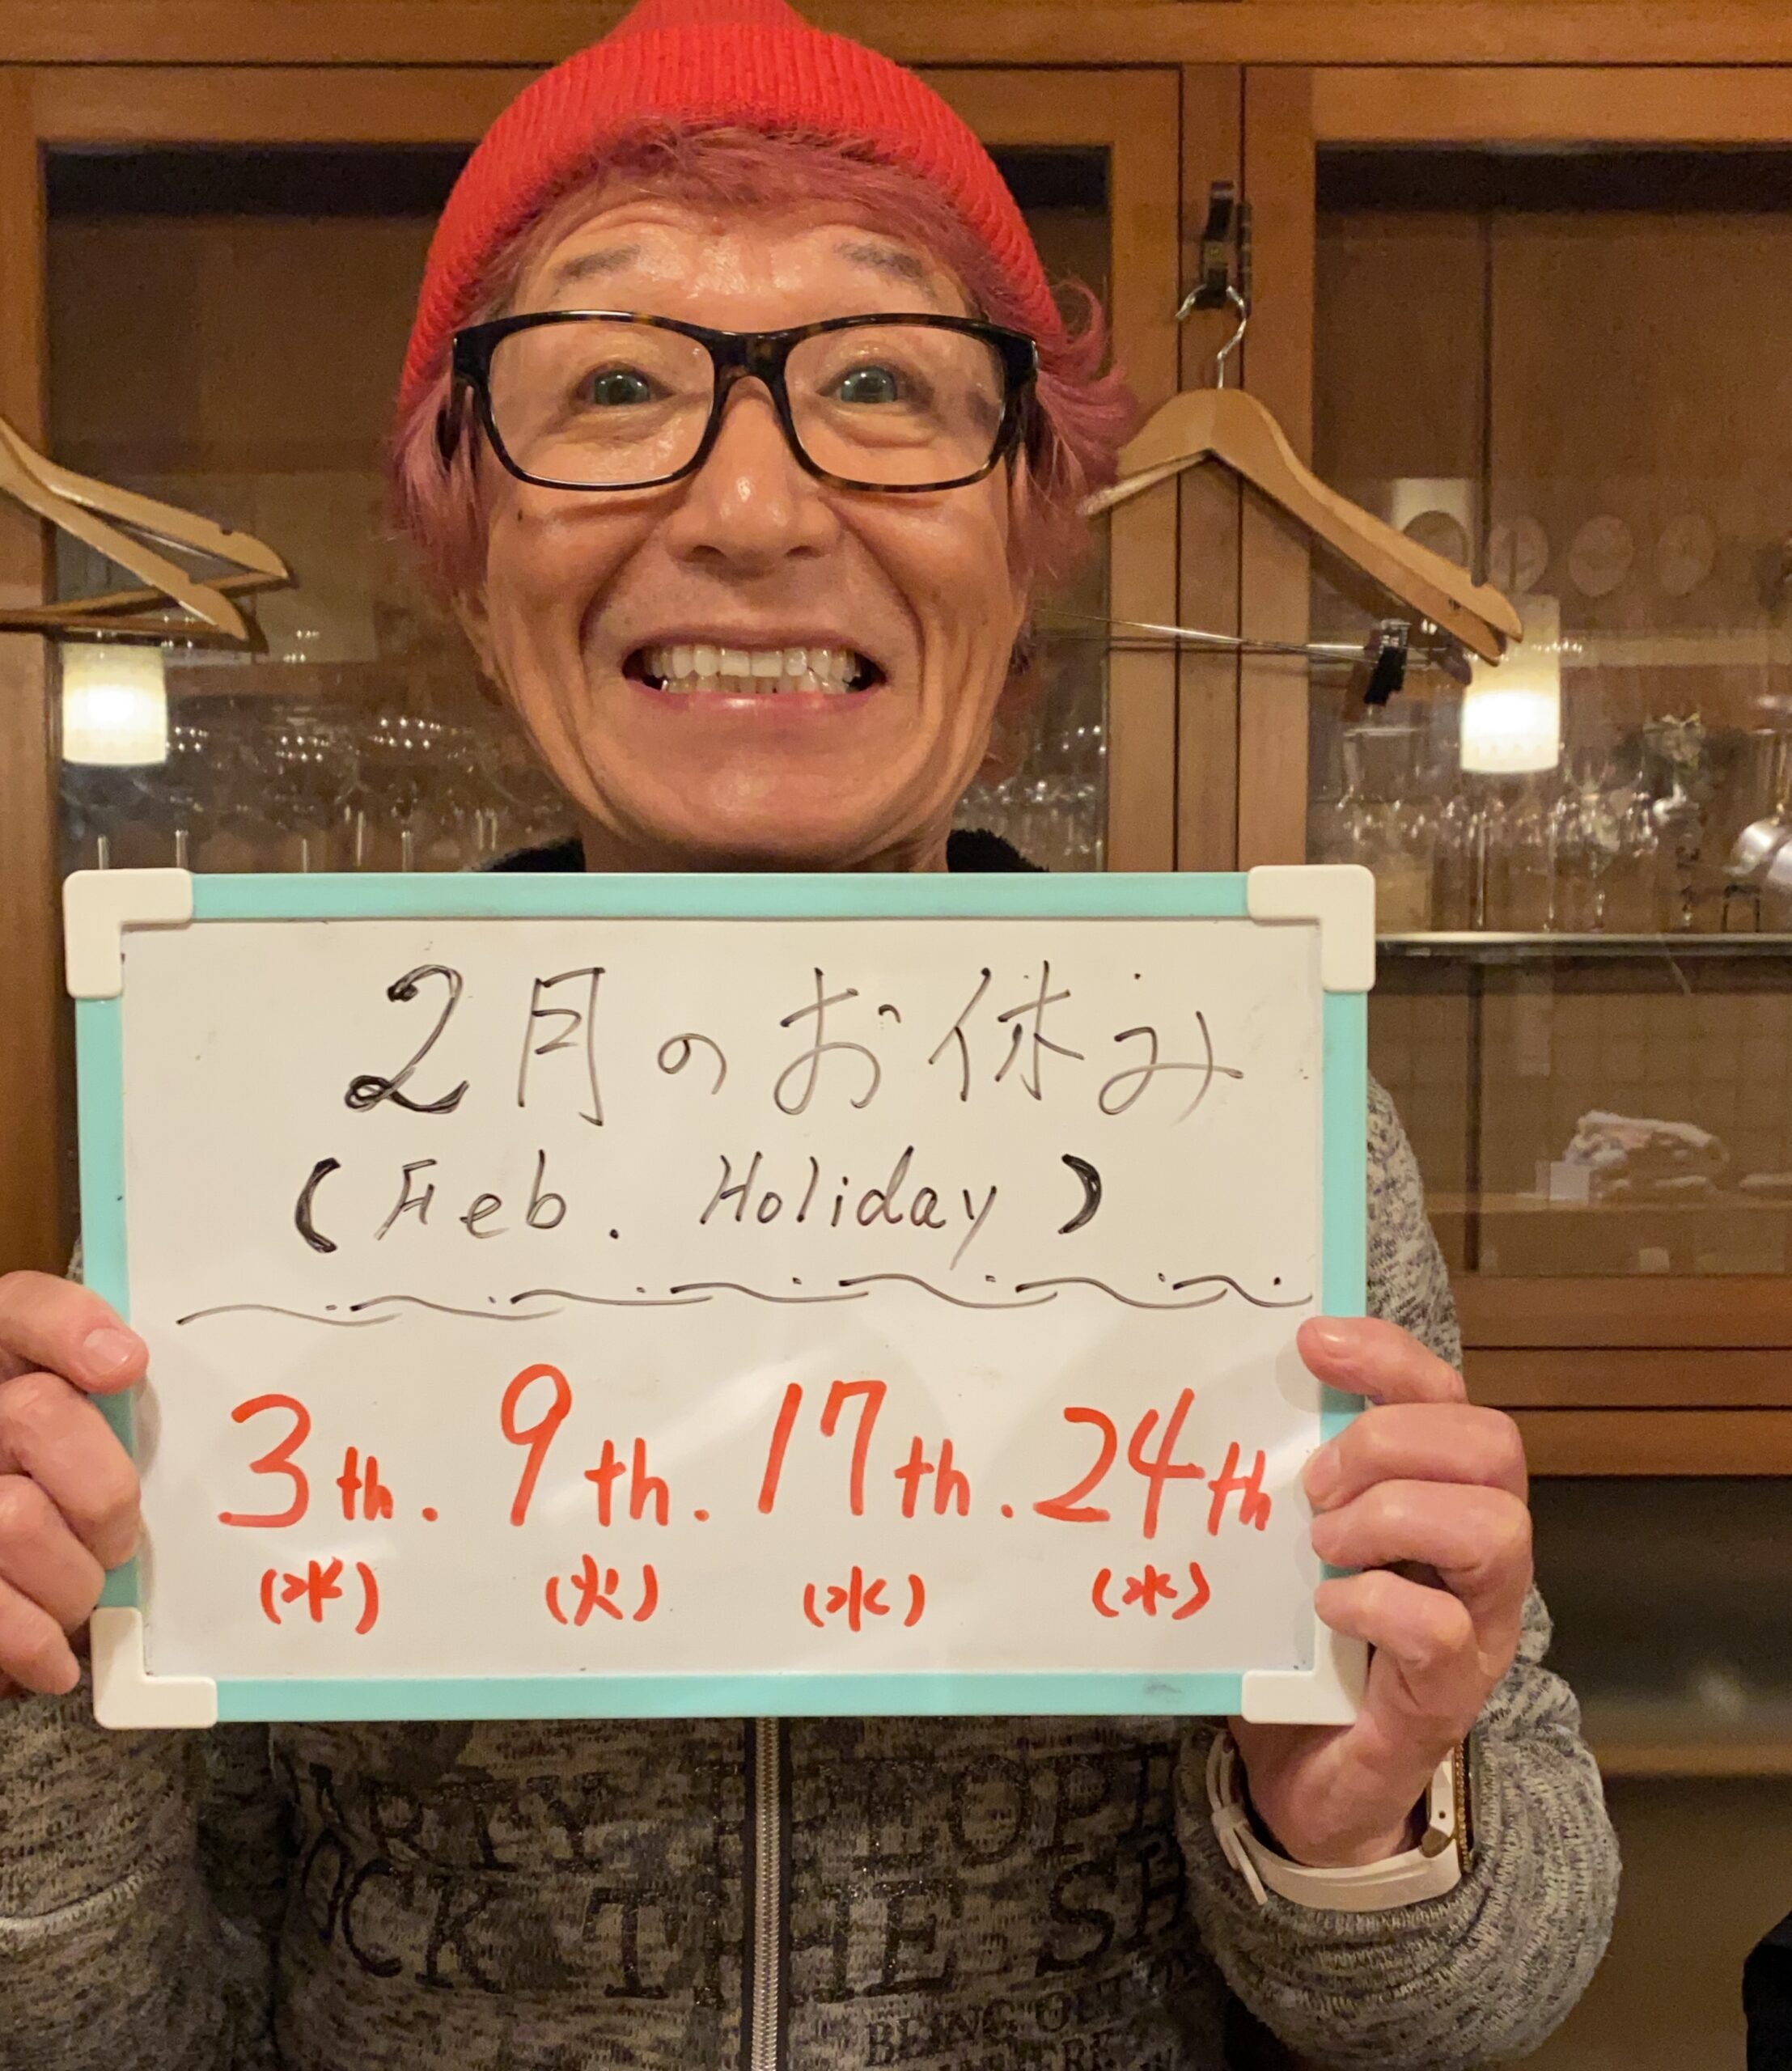 2月のお休み
(Feb. Holiday)
3th. 9th. 17th. 24th
(水) (火) (水) (水)
RTY PEOP
OCK THE SH
BEING OUT